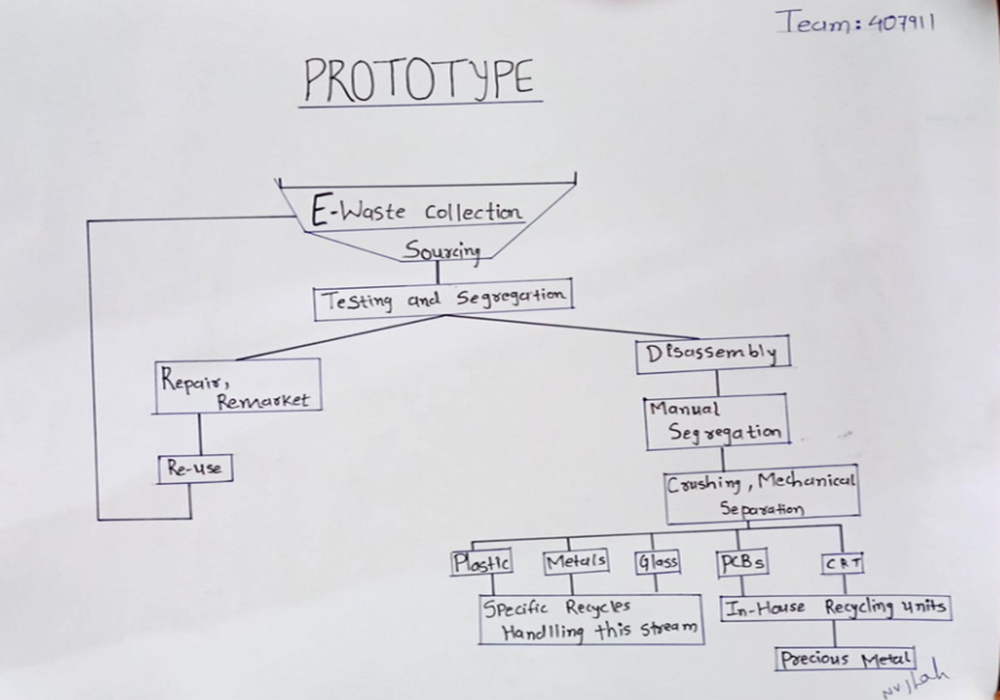 Team: 407911
PROTOTYPE
E-Waste Collection
Sourcing
Testing and Segregation
Repair,
Remarket
Re-use
Disassembly
Manual
Segregation
Crushing, Mechanical
Separation
Plastic Metals Glass PCBs CRT
Specific Recycles
Handlling this Stream
In-House Recycling units
Precious Metal